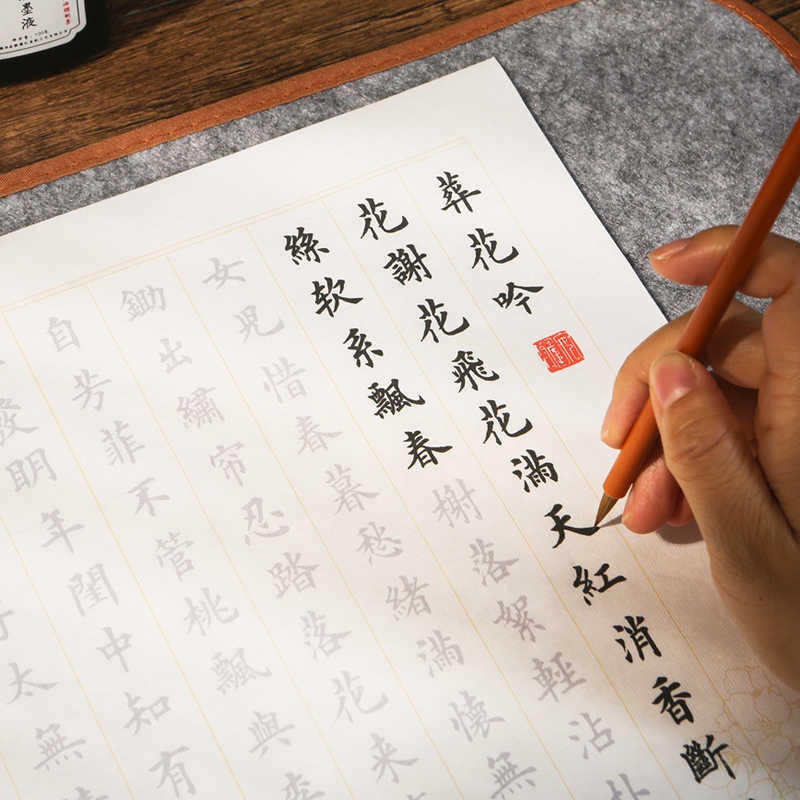 墨液
葬花吟
花謝花飛花滿天紅消香斷
絲软系飄春榭落絮輕沾扑
女児惜春暮愁緒滿懷無
鋤出繡帘忍踏落花来
自芳菲不管桃飄與
發明年閨中知有
太無